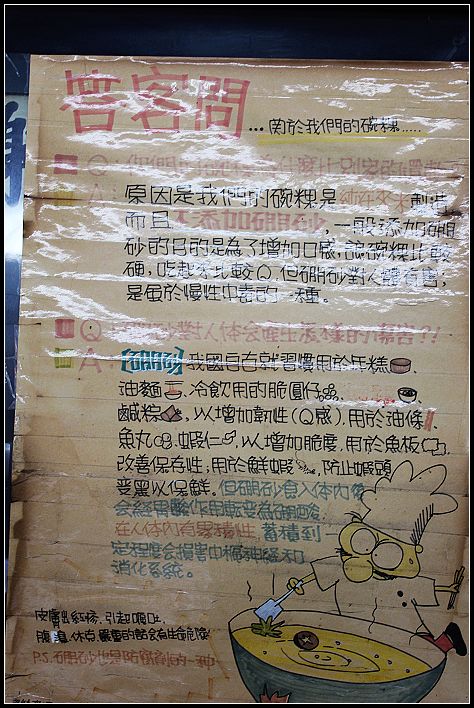 答客問
...關於我們的碗粿.....
Q:你們的
A:原因是我們的碗粿是純在來米製造
而且不添加硼砂,一般添加硼
砂的目的是為了增加口感,讓碗粿比較
硬,吃起來比較Q,但硼砂對人體有害,
是屬於慢性中毒的一種。
Q:硼砂對人体會產生怎樣的傷害?!
A:【硼砂】我國自古就習慣用於年糕、
油麵、冷飲用的脆圓仔、
鹼粽,以增加韌性(Q感),用於油條、
魚丸、蝦仁,以增加脆度,用於魚板、
改善保存性,用於鮮蝦、防止蝦頭
變黑以保鮮。但硼砂食入体內後
會經胃酸作用轉變為硼酸
在人体內有累積性,蓄積到一
定程度會損害中樞神經和
消化系統。
皮膚出紅疹,引起嘔吐,
腹瀉、休克嚴重的話會有生命危險
P.S.硼砂也是防腐劑的一種